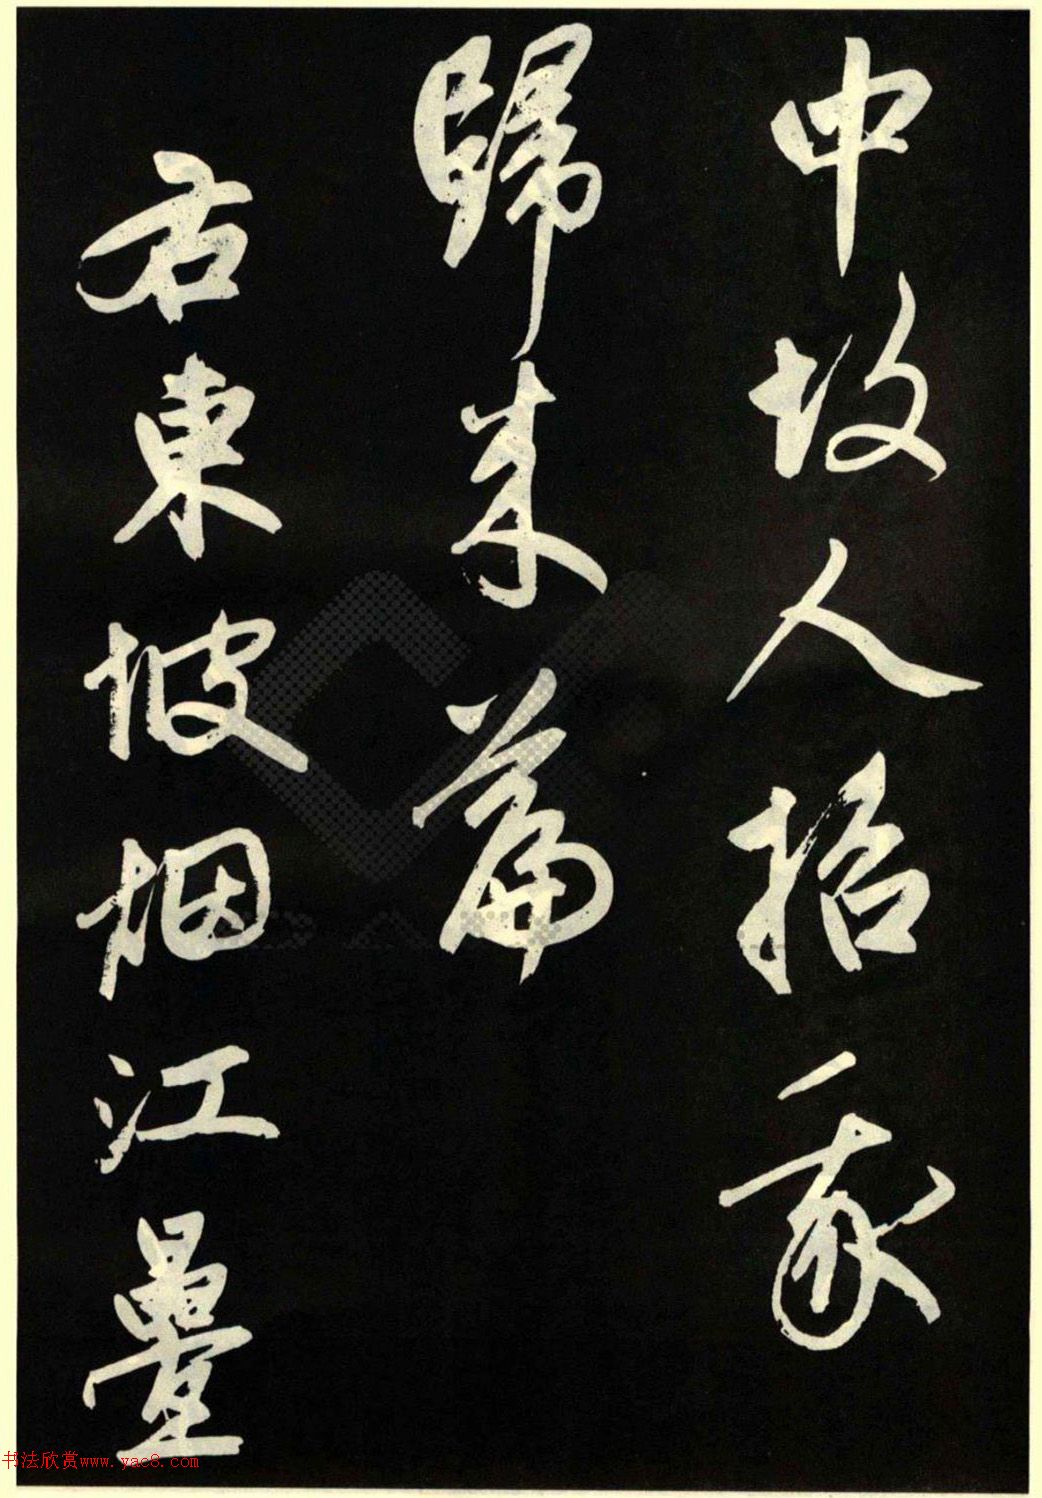 中故人招我
歸来篇
右東坡烟江疊
书法欣赏www.yac8.com